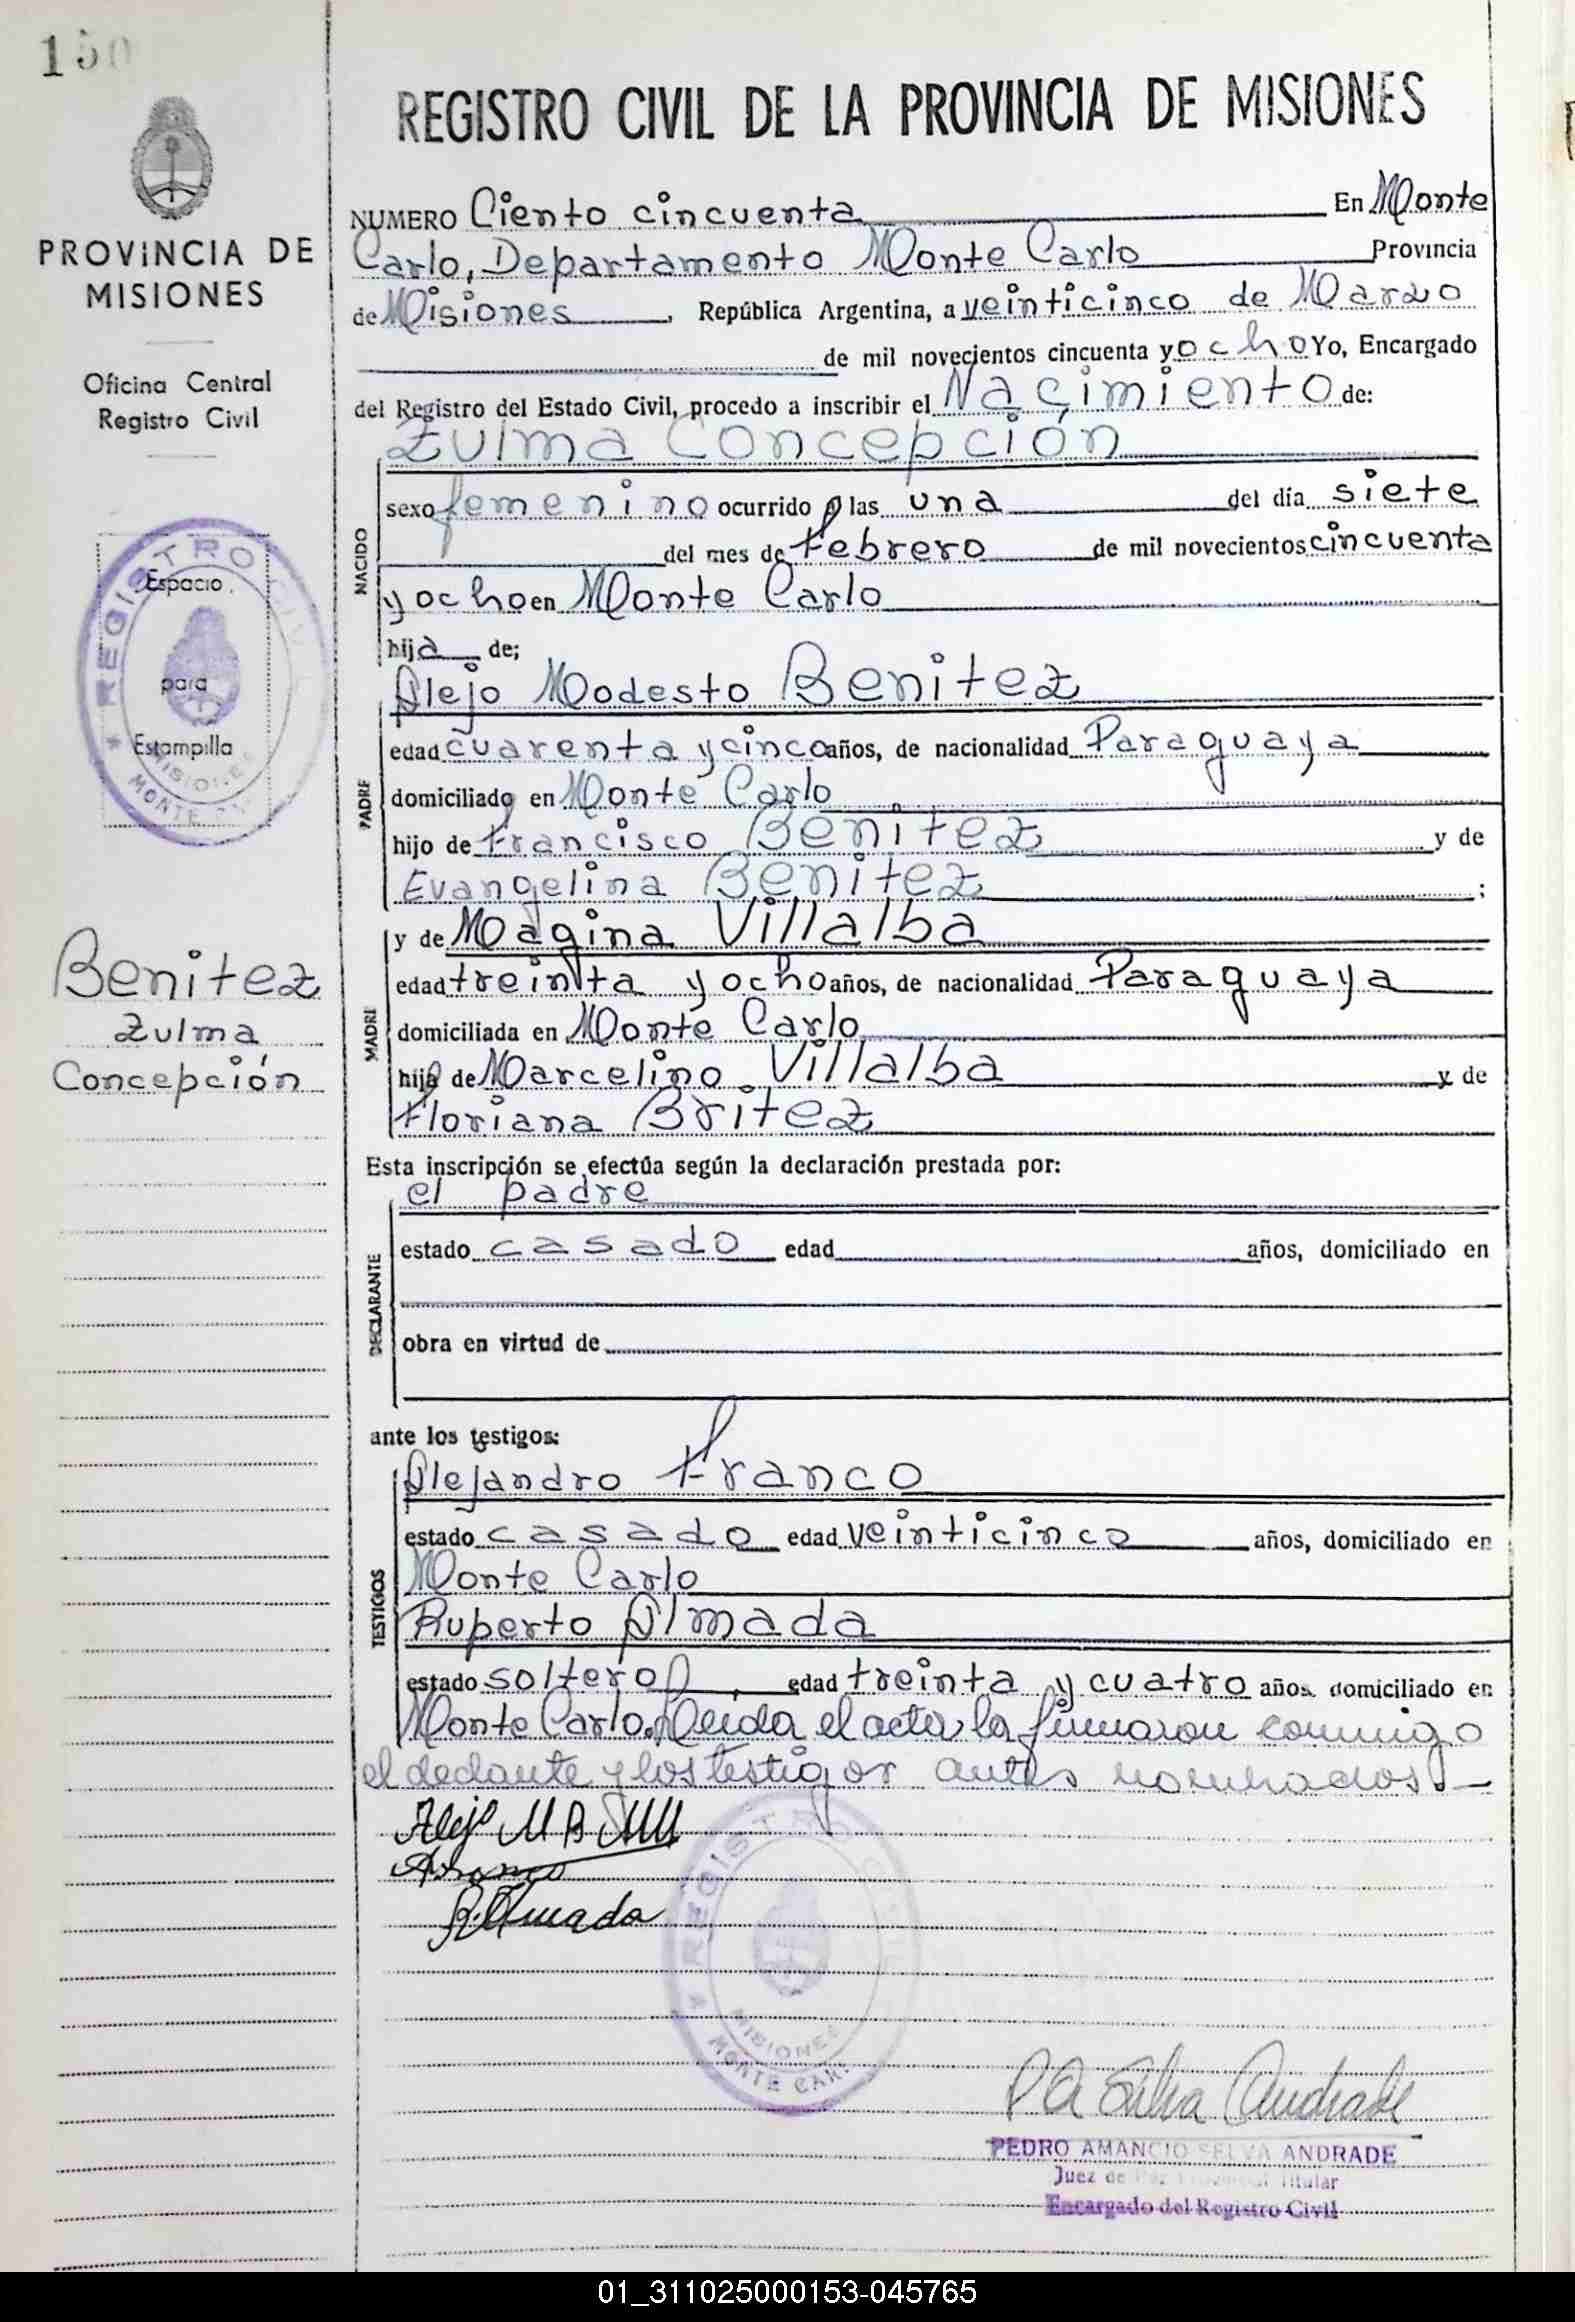 150
PROVINCIA DE
MISIONES
Oficina Central
Registro Civil
REGISTRO CIVIL
Espacio
para
Estampilla
MISIONES
MONTE
Benitez
Zulma
Concepción
REGISTRO CIVIL DE LA PROVINCIA DE MISIONES
NUMERO Ciento cincuenta En Monte
Carlo, Departamento Monte Carlo Provincia
de Misiones, República Argentina, a veinticinco de Marzo
de mil novecientos cincuenta y ocho Yo, Encargado
del Registro del Estado Civil, procedo a inscribir el Nacimiento de:
Zulma Concepción
NACIDO
sexo femenino ocurrido a las una del día siete
del mes de Febrero de mil novecientos cincuenta
y ocho en Monte Carlo
hija de;
Alejo Modesto Benitez
PADRE
edad cuarenta y cinco años, de nacionalidad Paraguaya
domiciliado en Monte Carlo
hijo de Francisco Benitez y de
Evangelina Benitez;
y de Magina Villalba
MADRE
edad treinta y ocho años, de nacionalidad Paraguaya
domiciliada en Monte Carlo
hija de Marcelino Villalba y de
Floriana Britez
Esta inscripción se efectúa según la declaración prestada por:
el padre
DECLARANTE
estado casado edad años, domiciliado en
obra en virtud de
ante los testigos:
Alejandro Franco
TESTIGOS
estado casado edad veinticinco años, domiciliado en
Monte Carlo
Ruperto Almada
estado soltero, edad treinta y cuatro años, domiciliado en
Monte Carlo. Leida el acta la firmaron conmigo
el declante y los testigos antes nombrados.
Alejo M B
Franco
R. Almada
REGISTRO CIVIL
MISIONES
MONTE CAR.
P A Selva Andrade
PEDRO AMANCIO SELVA ANDRADE
Juez de Paz Titular
Encargado del Registro Civil
01_311025000153-045765